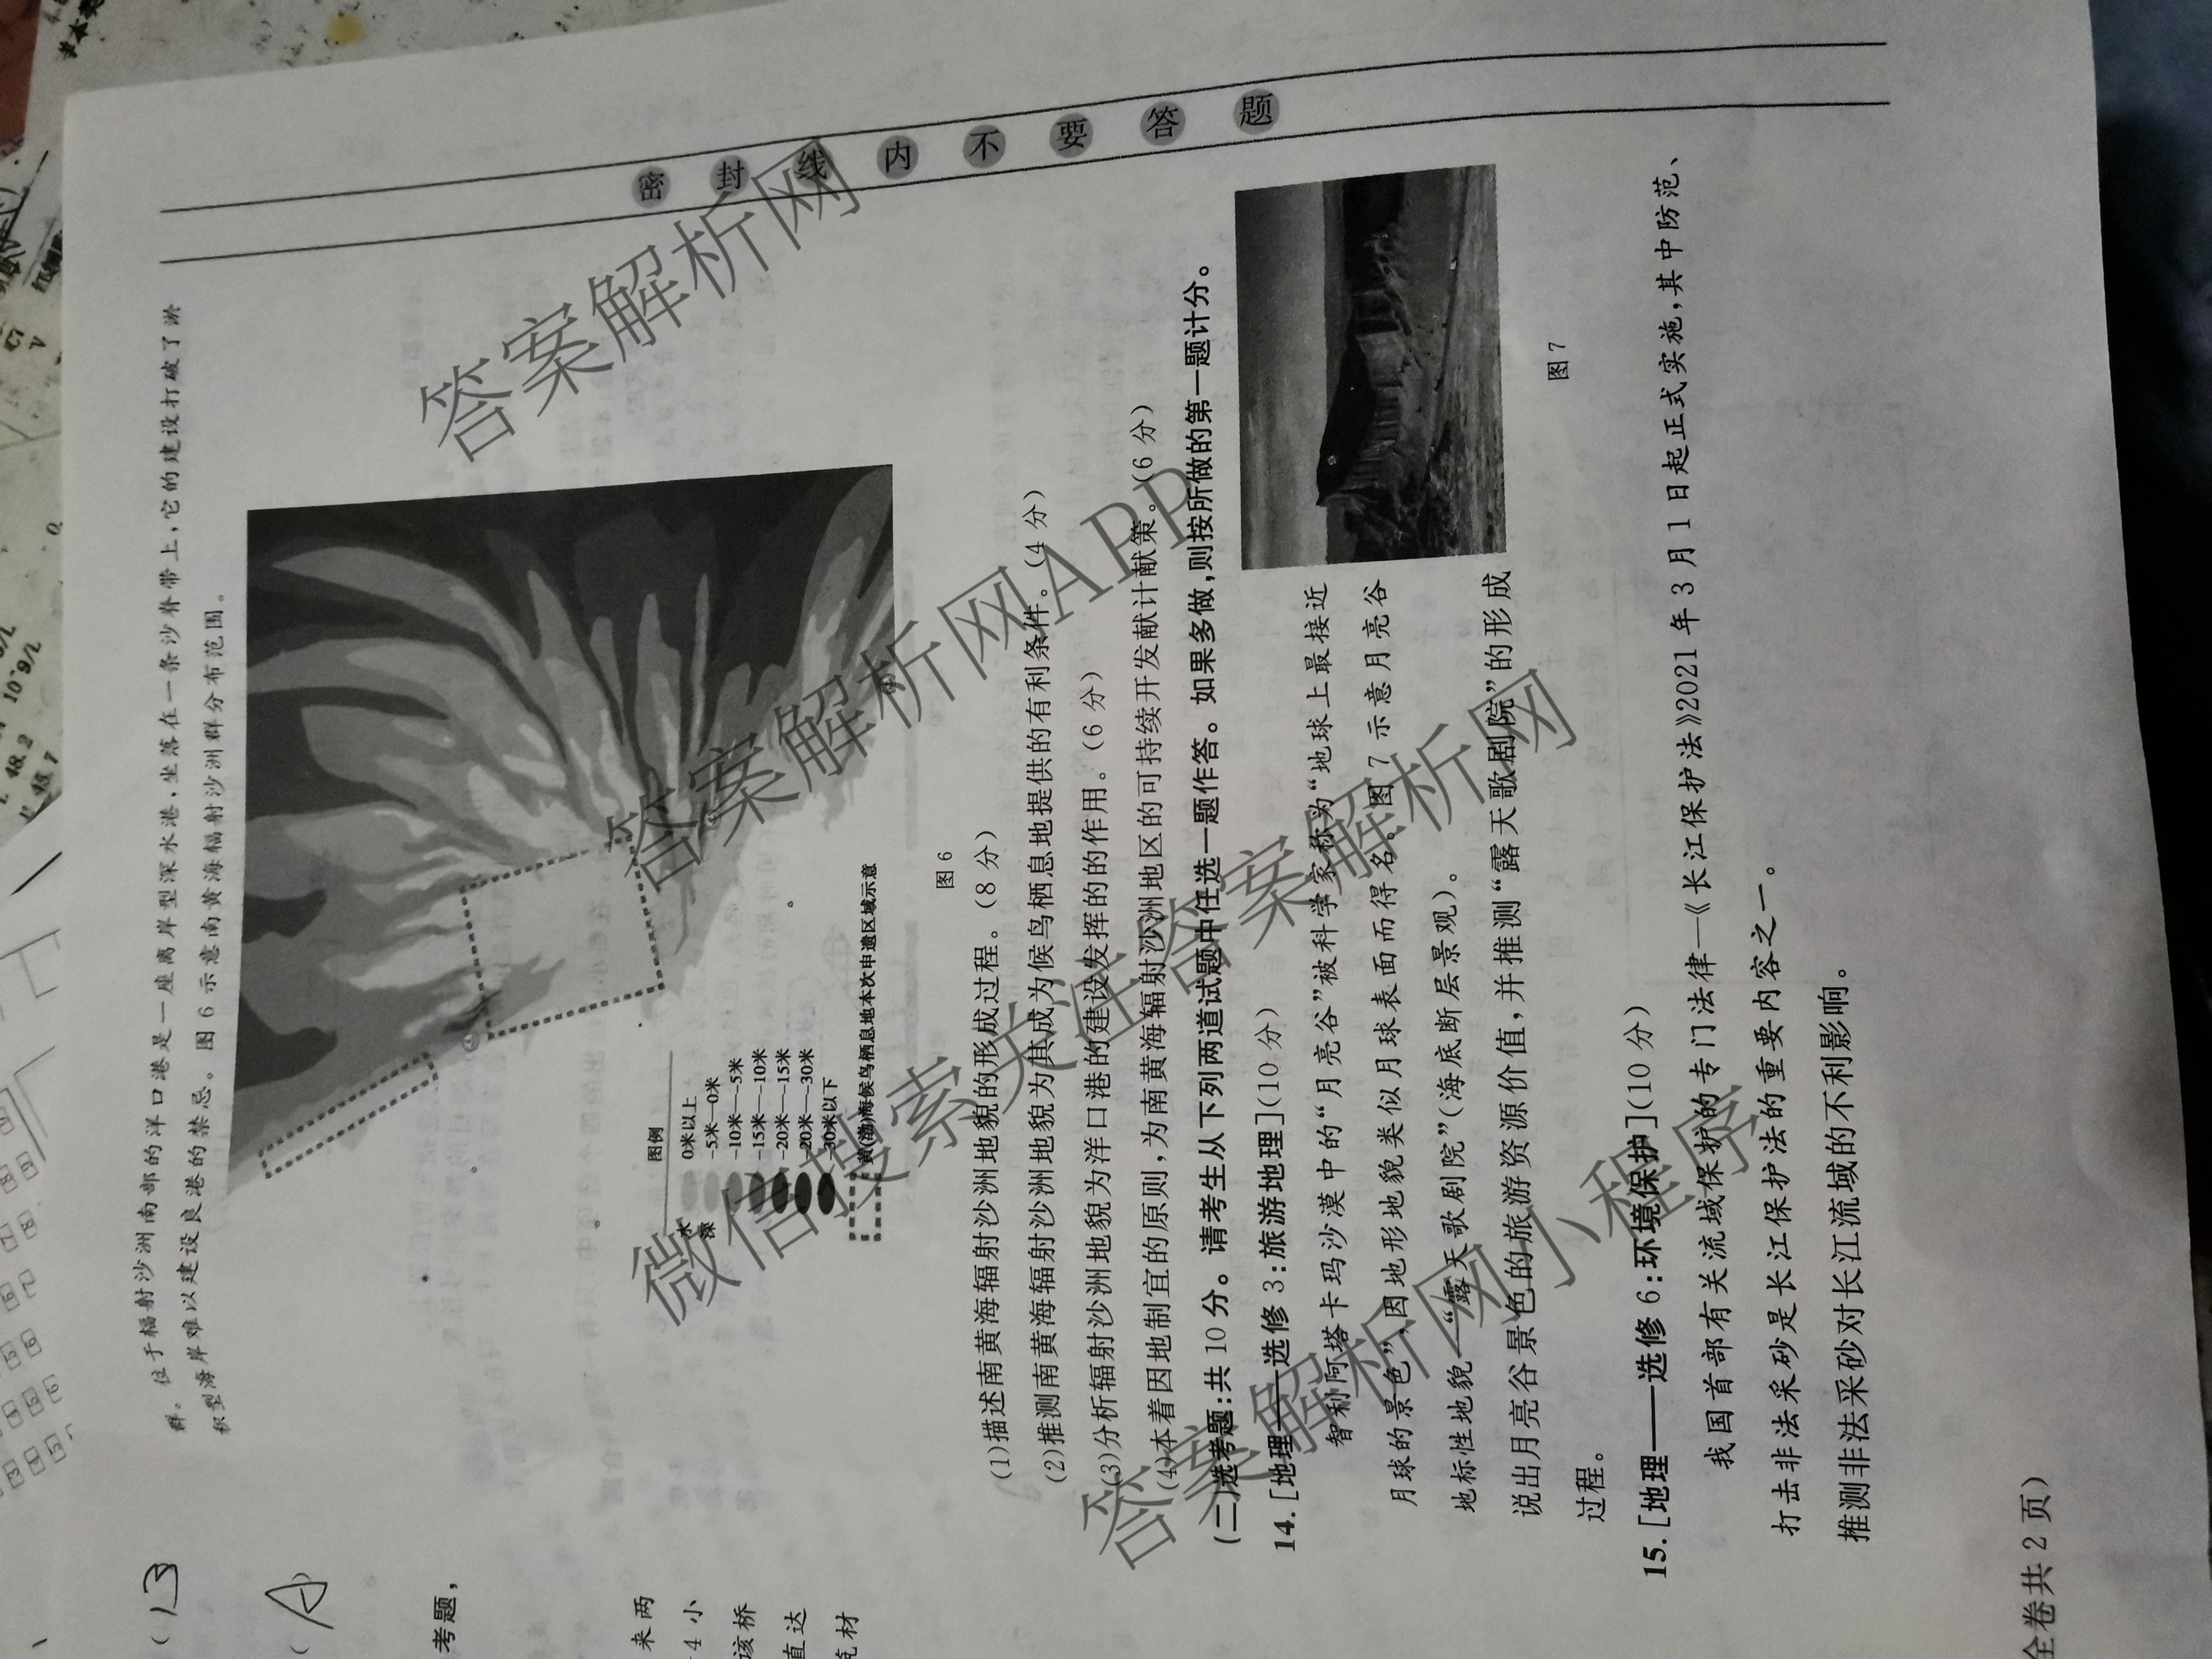 密封线内不要答题
群。位于辐射沙洲南部的洋口港是一座离岸型深水港,坐落在一条沙脊带上,它的建设打破了淤
积型海岸难以建设良港的禁忌。图6示意南黄海辐射沙洲群分布范围。
图例
水深
0米以上
-5米—0米
-10米—-5米
-15米—-10米
-20米—-15米
-20米—-30米
-30米以下
黄(渤)海候鸟栖息地本次申遗区域示意
图6
(1)描述南黄海辐射沙洲地貌的形成过程。(8分)
(2)推测南黄海辐射沙洲地貌为其成为候鸟栖息地提供的有利条件。(4分)
(3)分析辐射沙洲地貌为洋口港的建设发挥的的作用。(6分)
(4)本着因地制宜的原则,为南黄海辐射沙洲地区的可持续开发献计献策。(6分)
(二)选考题:共10分。请考生从下列两道试题中任选一题作答。如果多做,则按所做的第一题计分。
14.[地理——选修3:旅游地理](10分)
智利阿塔卡玛沙漠中的“月亮谷”被科学家称为“地球上最接近
月球的景色”,因地形地貌类似月球表面而得名。图7示意月亮谷
地标性地貌——“露天歌剧院”(海底断层景观)。
说出月亮谷景色的旅游资源价值,并推测“露天歌剧院”的形成
过程。
图7
15.[地理——选修6:环境保护](10分)
我国首部有关流域保护的专门法律—《长江保护法》2021年3月1日起正式实施,其中防范、
打击非法采砂是长江保护法的重要内容之一。
推测非法采砂对长江流域的不利影响。
全卷共2页)
(B
(A)
考题,
来两
4小
该桥
直达
答案解析网
答案解析网APP
微信搜索关注答案解析网
答案解析网小程序